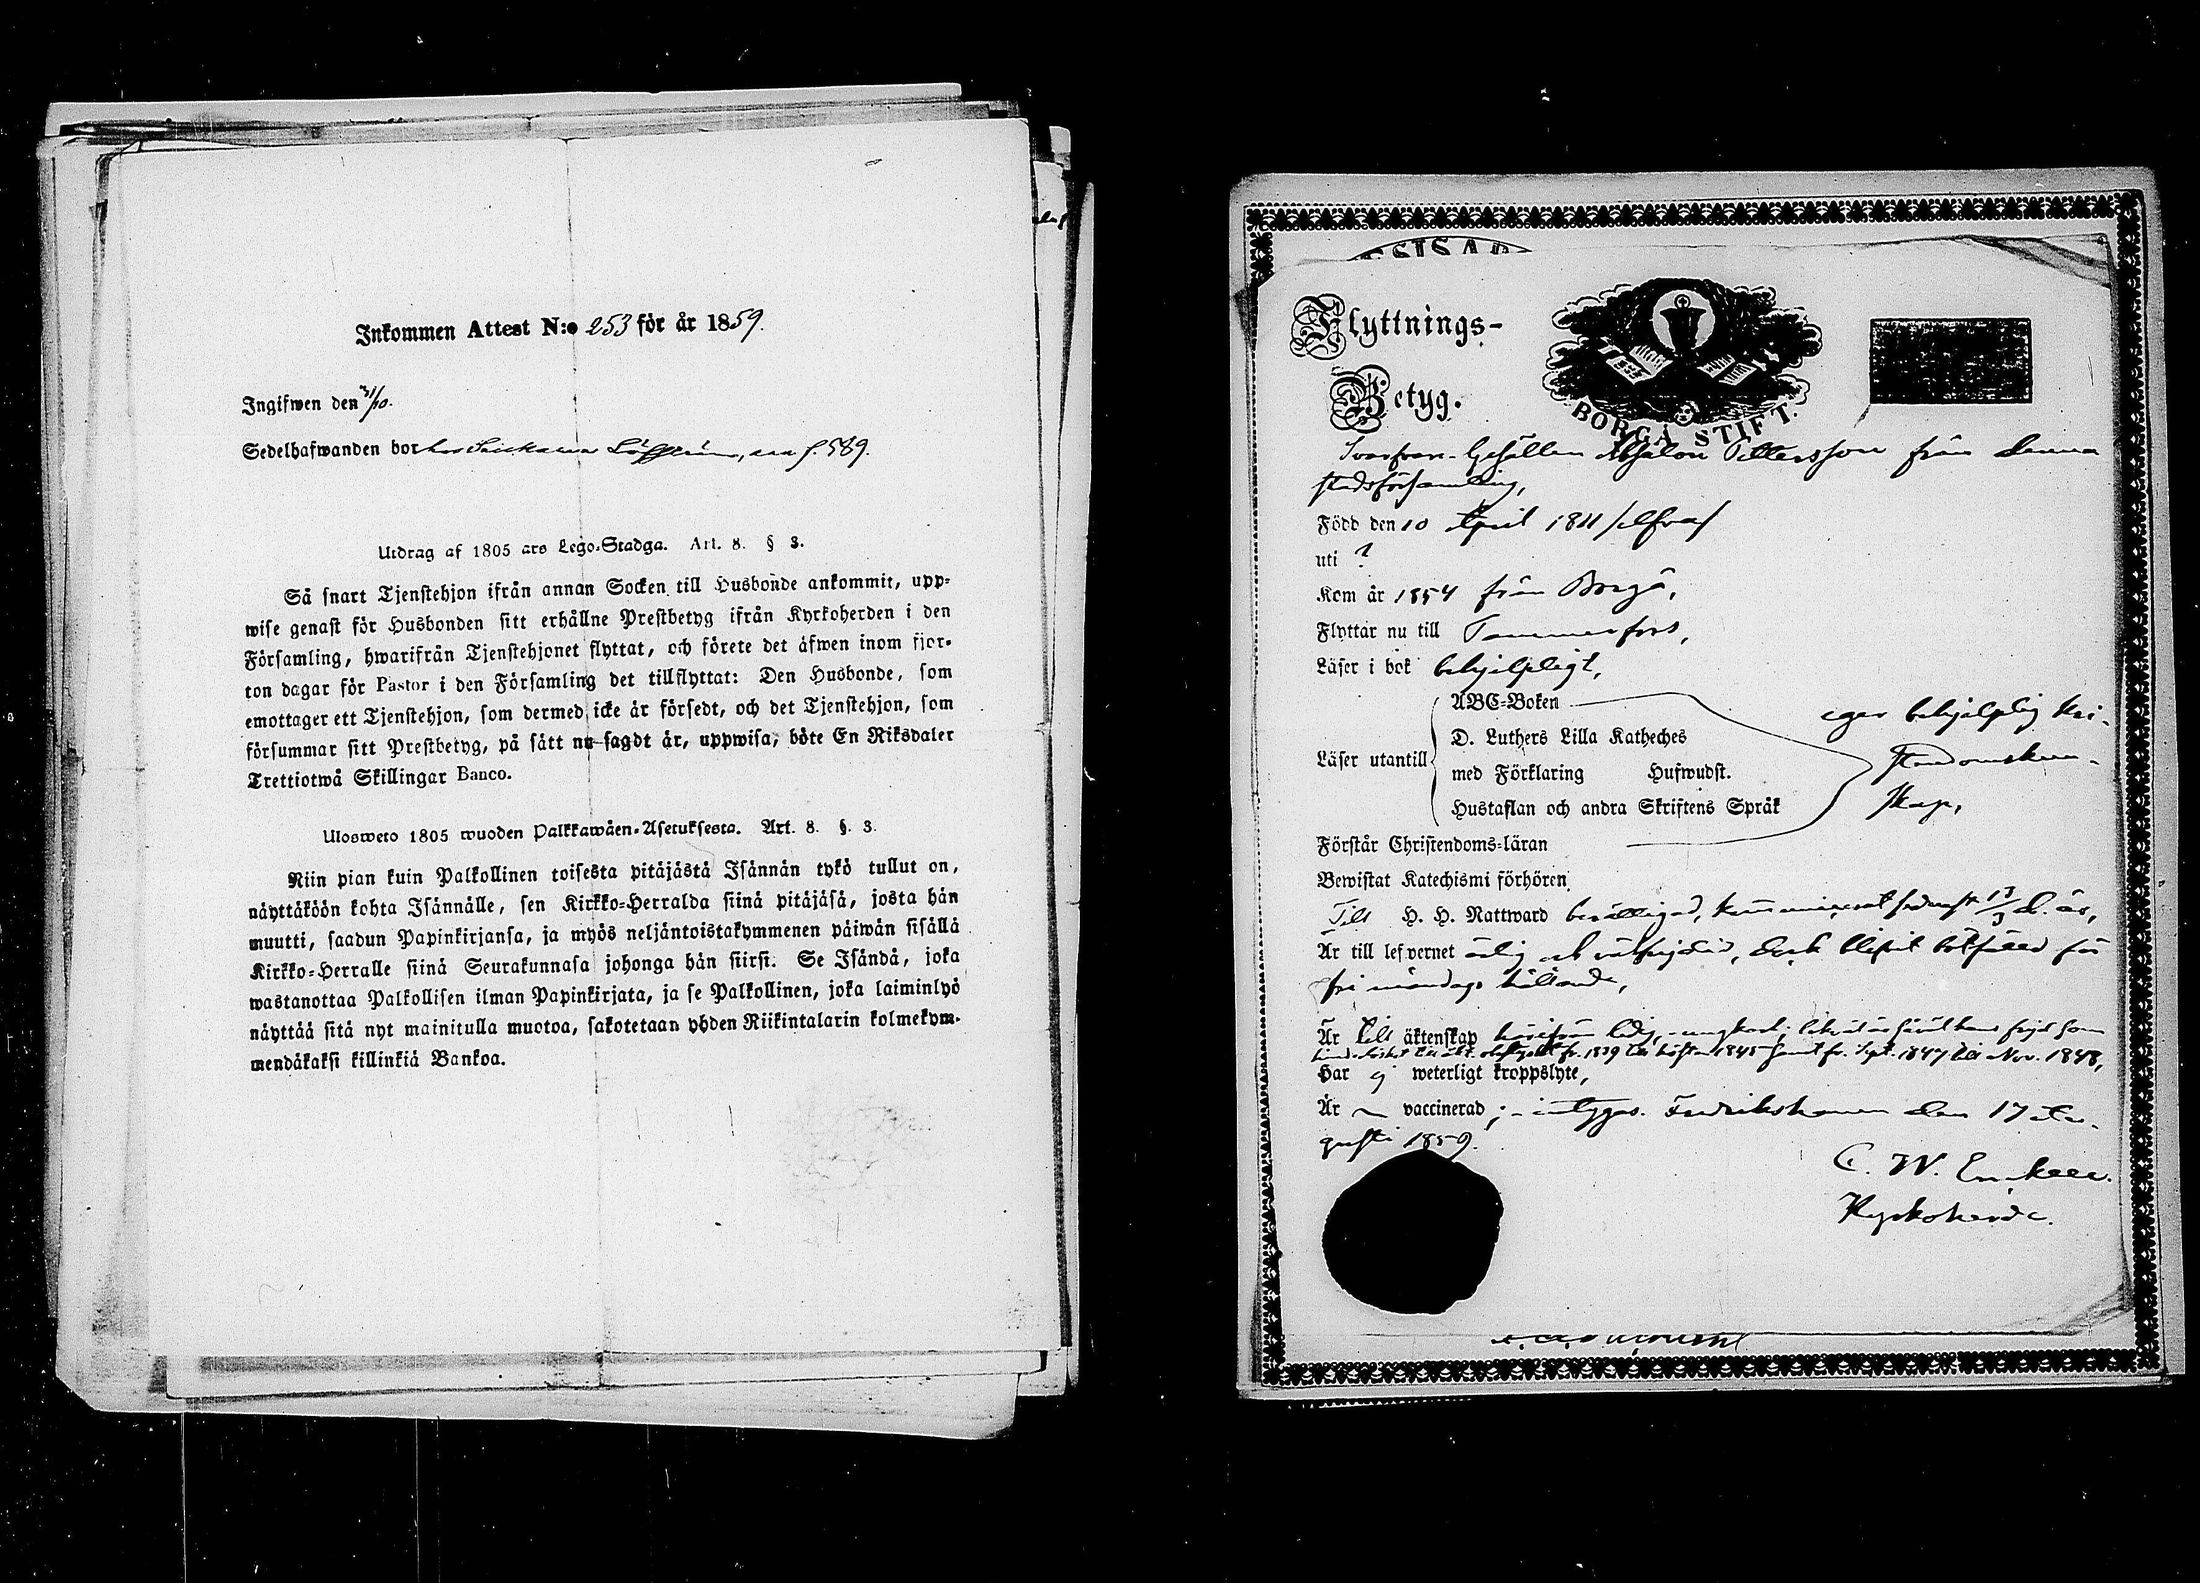 Inkommen Attest N:o 253 för år 1859.
Ingifwen den 31/10.
Sedelhafwanden bor hos Snickaren, f. 589.
Utdrag af 1805 ars Lego-Stadga. Art. 8. § 3.
Så snart Tjenstehjon ifrån annan Socken till Husbonde ankommit, upp-
wise genast för Husbonden sitt erhållne Prestbetyg ifrån Kyrkoherden i den
Församling, hwarifrån Tjenstehjonet flyttat, och förete det äfwen inom fjor-
ton dagar för Pastor i den Församling det tillflyttat: Den Husbonde, som
emottager ett Tjenstehjon, som dermed icke är försedt, och det Tjenstehjon, som
försummar sitt Prestbetyg, på sätt nu sagdt är, uppwisa, böte En Riksdaler
Trettiotwå Skillingar Banco.
Ulosweto 1805 wuoden Palkkawäen-Asetuksesta. Art. 8. §. 3.
Niin pian kuin Palkollinen toisesta pitäjästä Isännän tykö tullut on,
näyttäköön kohta Isännälle, sen Kirkko-Herralda siinä pitäjäsä, josta hän
muutti, saadun Papinkirjansa, ja myös neljäntoistakymmenen päiwän sisällä
Kirkko-Herralle siinä Seurakunnasa johonga hän siirsi. Se Isändä, joka
wastanottaa Palkollisen ilman Papinkirjata, ja se Palkollinen, joka laiminlyö
näyttää sitä nyt mainitulla muotoa, sakotetaan yhden Riikintalarin kolmekym-
mendäkaksi killinkiä Bankoa.
Flyttnings-
Betyg.
BORGÅ STIFT.
Svarfvare-Gesällen Absalon Pettersson från denna
stadsförsamling,
Född den 10 April 1811
uti ?
Kom år 1854 från Borgå,
Flyttar nu till Tammerfors,
Läser i bok behjelpligt,
Läser utantill
ABC-Boken
D. Luthers Lilla Katheches
med Förklaring Hufwudst.
Hustaflan och andra Skriftens Språk
eger behjelplig Kri-
stendomskun-
skap,
Förstår Christendoms-läran
Bewistat Katechismi förhören
Till H. H. Nattward berättigad, kommunicerat sednast 13/3 d. år,
Är till lefvernet ärlig och, dock blifvit bötfälld för
fri måndags hållande,
Är till äktenskap härifrån ledig, - ungkarl;
fr. 1839 till hösten 1845 samt fr. Sept. 1847 till Nov. 1848,
Har ej weterligt kroppslyte,
Är vaccinerad; - intygas. Fredrikshamn den 17 Au-
gusti 1859.
C. W. Enckell.
Kyrkoherde.